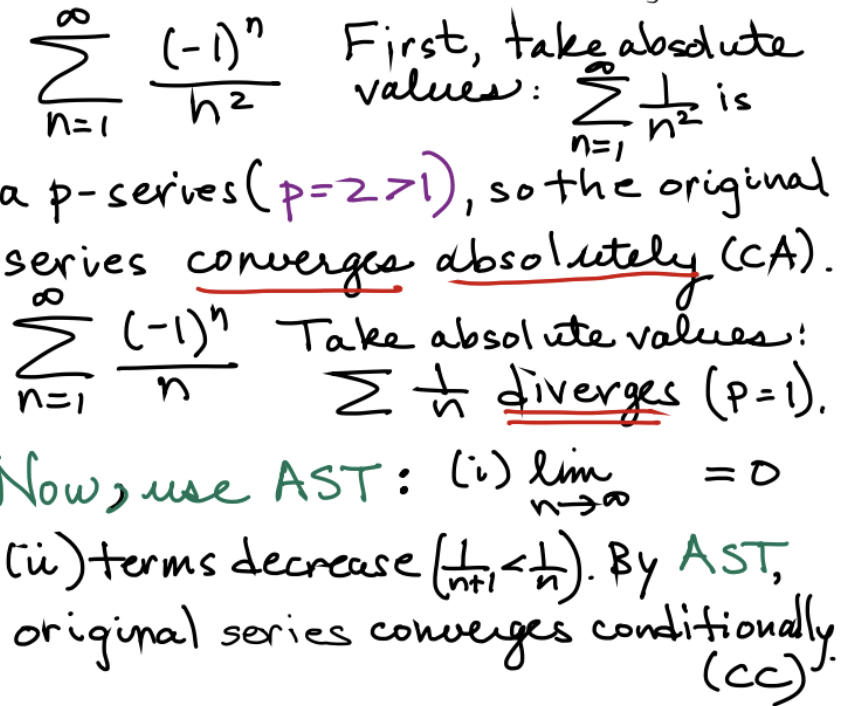 ∞
∑ (-1)ⁿ/n² First, take absolute
n=1 values: ∞∑n=1 1/n² is
a p-series (p=2>1), so the original
series converges absolutely (CA).
∞
∑ (-1)ⁿ/n Take absolute values:
n=1 ∑ 1/n diverges (p=1).
Now, use AST: (i) lim n→∞ = 0
(ii) terms decrease (1/n+1 < 1/n). By AST,
original series converges conditionally.
(CC)